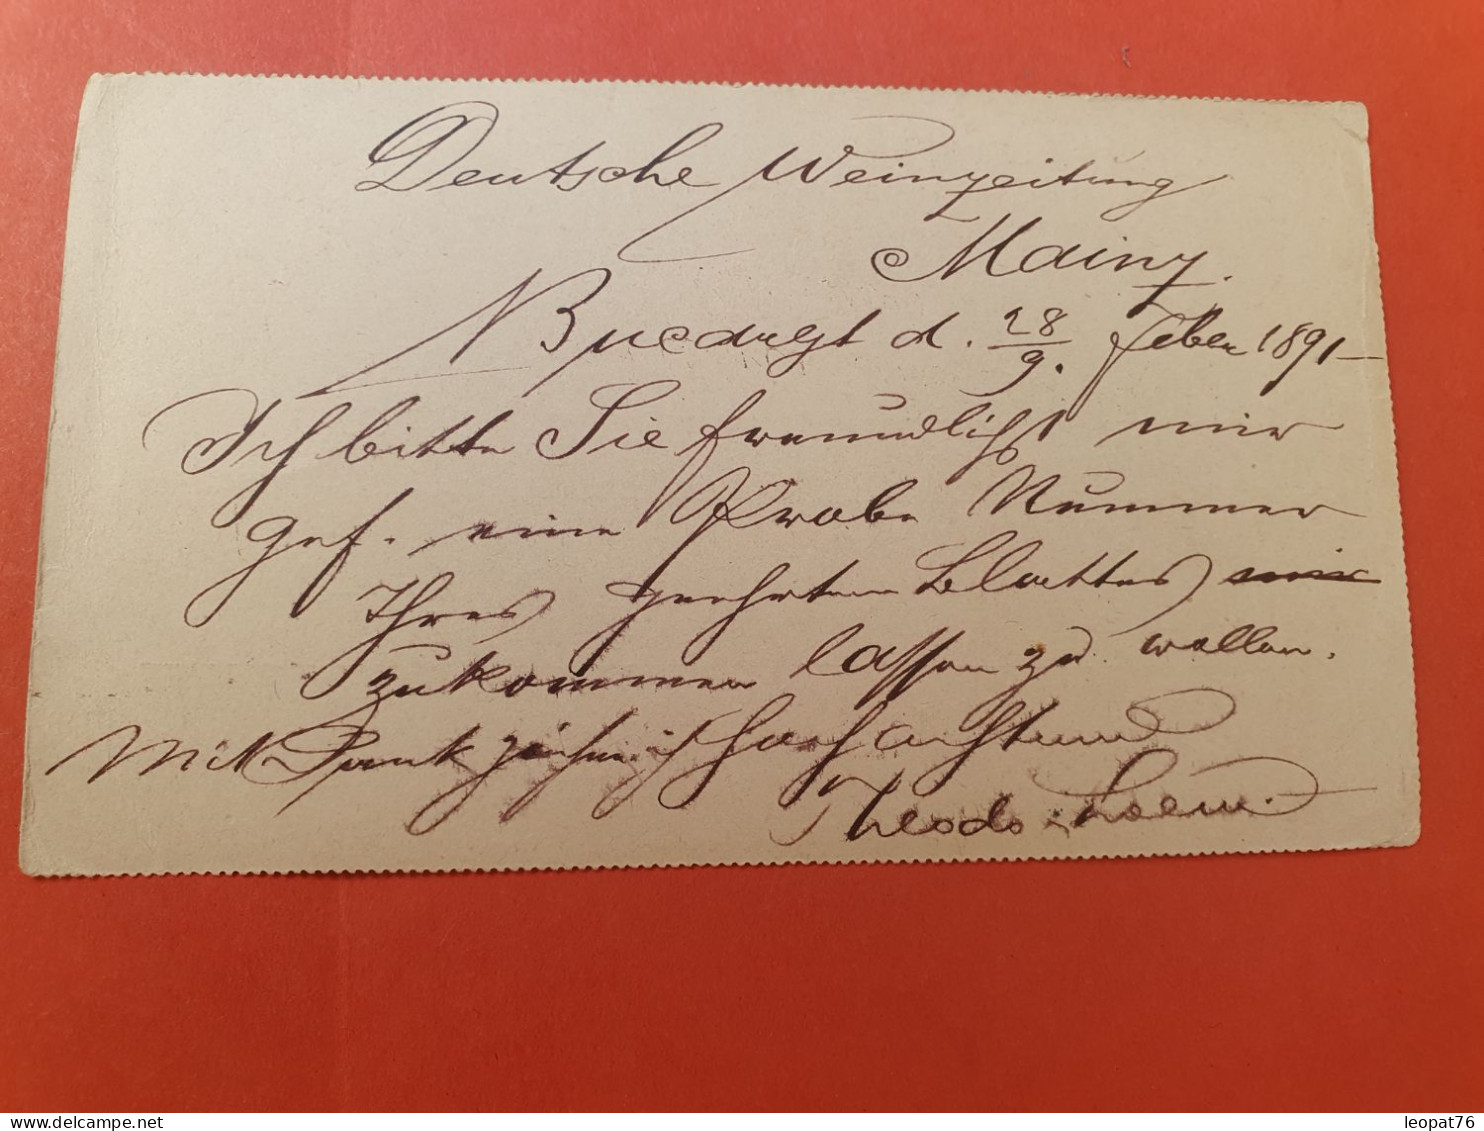 Deutsche Weinzeitung
Mainz.
Bucarest d. 28/9. Feber 1891
Ich bitte Sie freundlichst mir
gef. eine Probe Nummer
Ihres geehrten Blattes mir
zukommen lassen zu wollen.
Mit Dank zeichne ich Hochachtend
Theodor
leopat76